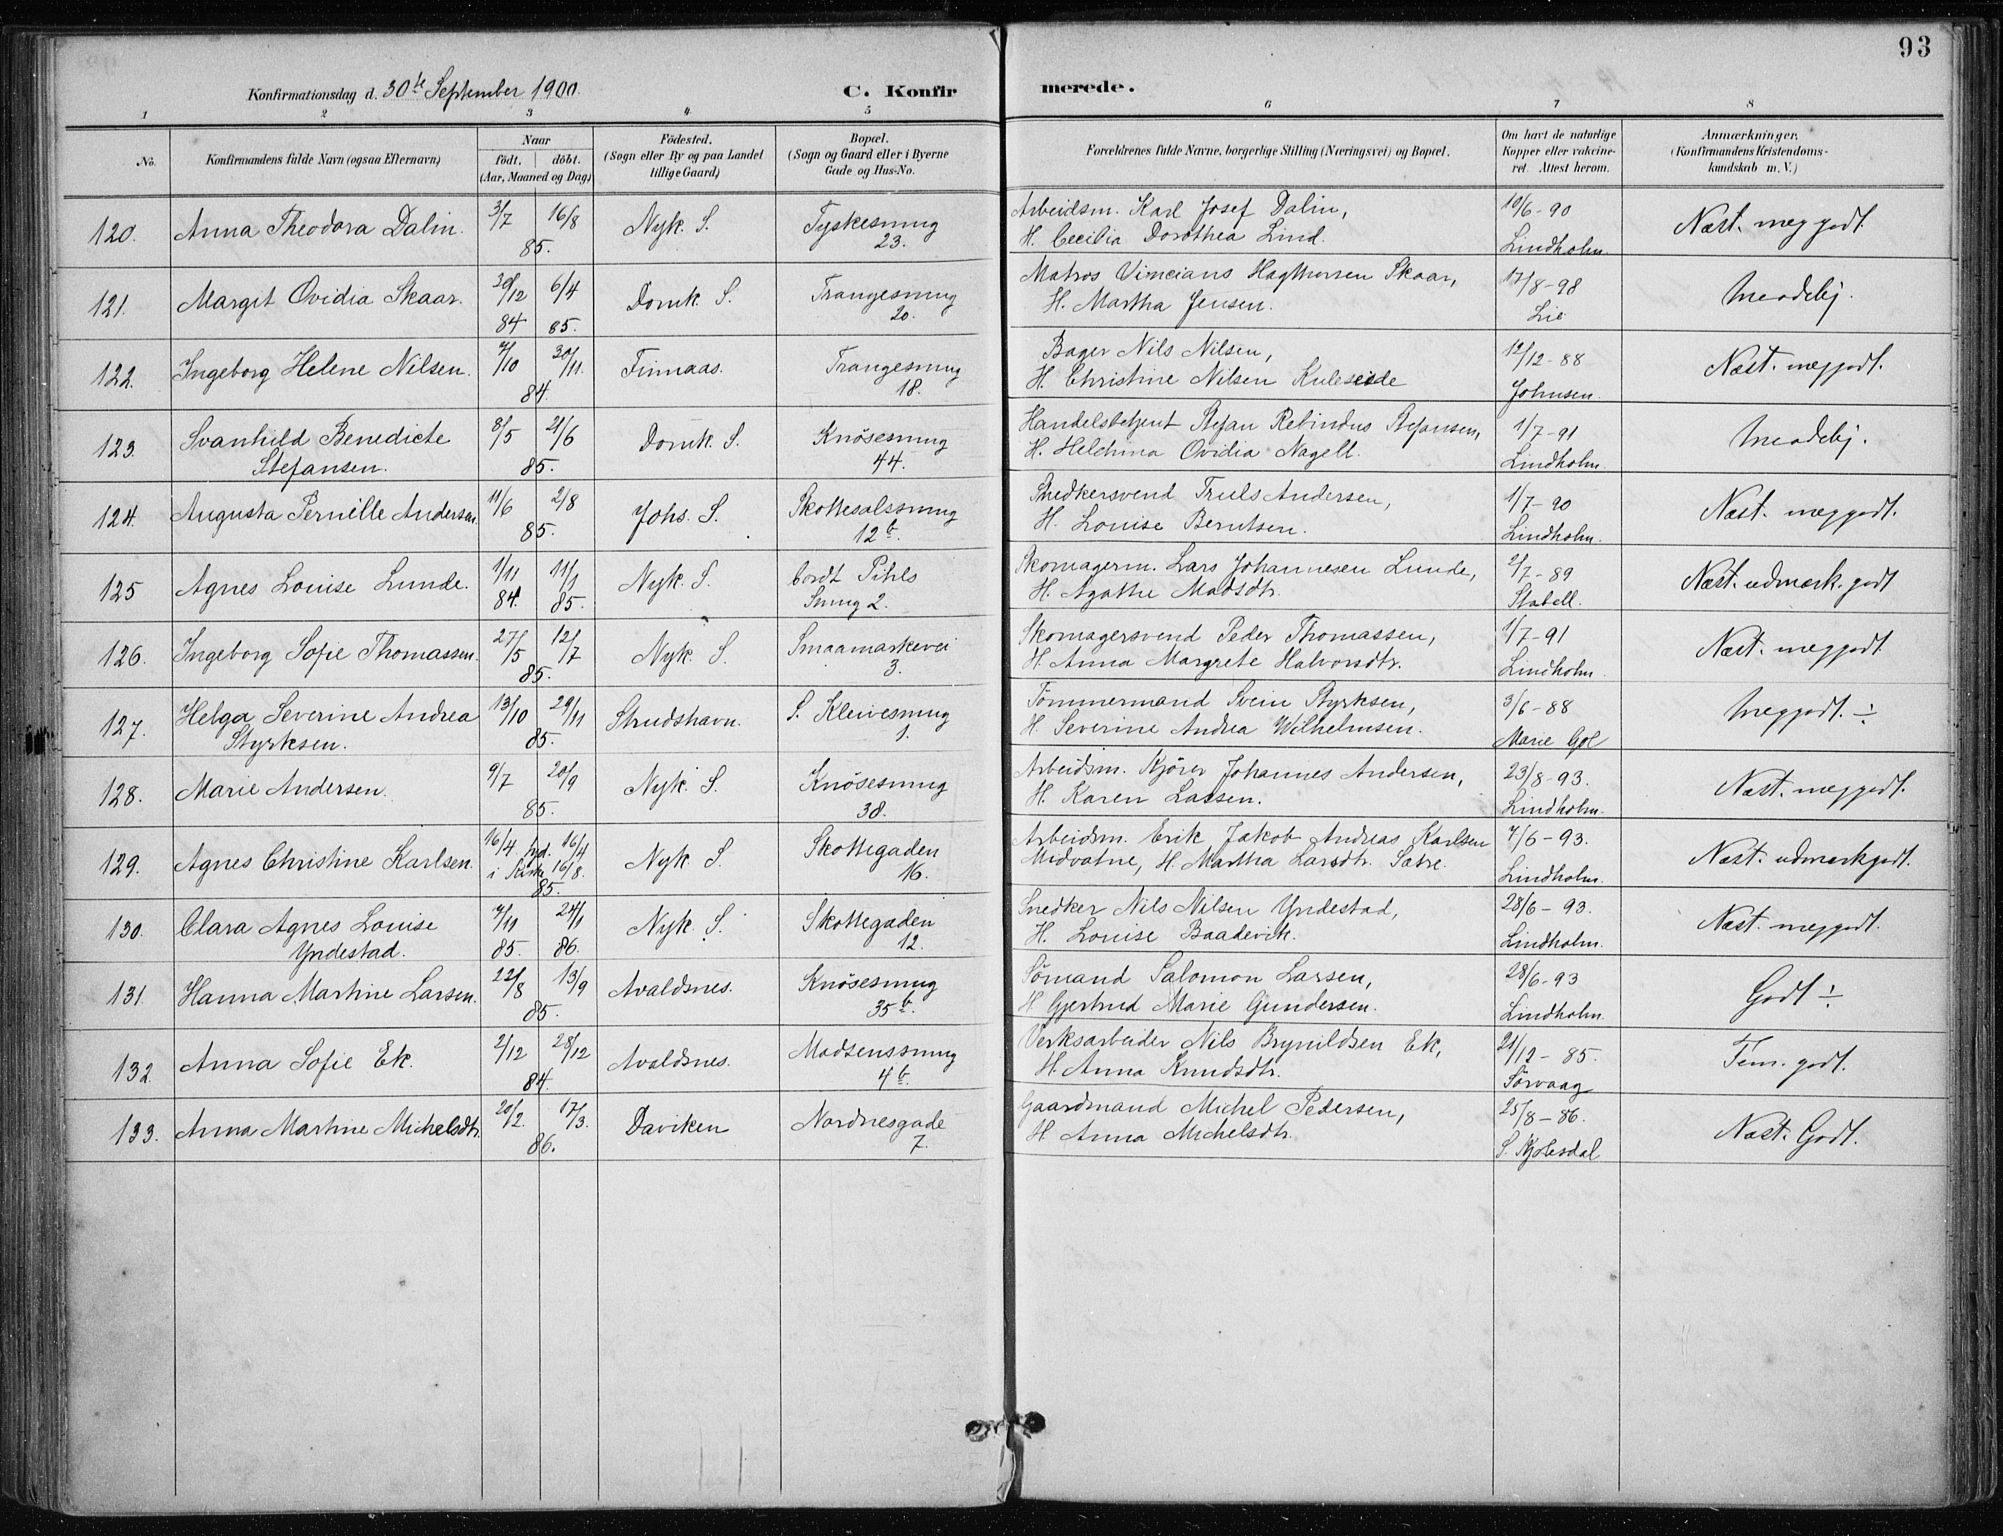 93
Konfirmationsdag d. 30te September 1900.
C. Konfirmerede.
1 2 3 4 5 6 7 8
No.
Konfirmandens fulde Navn (ogsaa Efternavn)
Naar
født. døbt.
(Aar, Maaned og Dag)
Fødested.
(Sogn eller By og paa Landet
tillige Gaard)
Bopæl.
(Sogn og Gaard eller i Byerne
Gade og Hus-No.
Forældrenes fulde Navne, borgerlige Stilling (Næringsvei) og Bopæl.
Om havt de naturlige
Kopper eller vakcine-
ret. Attest herom.
Anmærkninger.
(Konfirmandens Kristendoms-
kundskab m. V.)
120. Anna Theodora Dalin. 3/7 16/8 85. Nyk. S. Tyskesmug 23. Arbeidsm. Karl Josef Dalin, H. Cecilia Dorothea Lind. 10/6-90 Lindholm. Næst. meg godt.
121. Margit Ovidia Skaar. 30/12 84 6/4 85. Domk. S. Trangesmug 20. Matros Skaar, H. Martha Jensen. 17/8-98 Lie
122. Ingeborg Helene Nilsen. 7/10 30/11. 84. Finnaas. Trangesmug 18. Bager Nils Nilsen, H. Christine Nilsen Kuleseide 12/12-88 Johnsen. Næst. meggodt.
123. Svanhild Benedicte Stefansen. 8/5 21/6 85. Domk. S. Knösesmug 44. Handelsbetjent Stefan Rebindus Stefansen, H. Helchina Ovidia Nagell. 1/7-91 Lindholm.
124. Augusta Pernille Andersen 11/6 2/8 85. Johs. S. Skottesalssmug 12b. Snedkersvend Truls Andersen, H. Louise Berntsen. 1/7-90 Lindholm. Næst. meggodt.
125 Agnes Louise Lunde. 1/11 84. 11/1 85. Nyk. S. Cordt Pihls Smug 2. Skomagerm. Lars Johannesen Lunde, H. Agathe Madsdtr. 2/7-89 Stabell. Næst. udmærk. godt
126. Ingeborg Sofie Thomassen. 27/5 12/7 85. Nyk. S. Smaamarkevei 3. Skomagersvend Peder Thomassen, H. Anna Margrete Halvorsdtr. 1/7-91 Lindholm. Næst. meggodt
127. Helga Severine Andrea Styrksen. 13/10 29/11 85. Strudshavn. S. Kleivesmug 1. Tömmermand Svein Styrksen, H. Severine Andrea Wilhelmsen. 3/6-88 Marie Gol Meggodt. ÷
128. Marie Andersen. 9/7 20/9 85. Nyk. S. Knösesmug 38. Arbeidsm. Kjörer Johannes Andersen, H. Karen Lassen. 23/8-93. Lindholm. Næst. meggodt.
129. Agnes Christine Karlsen. 16/4 hjd. 16/4 i Kirke 16/8. 85. Nyk S. Skottegaden 16. Arbeidsm. Erik Jakob Andreas Karlsen Midvatne, H. Martha Larsdtr. Sætre. 7/6-93. Lindholm. Næst. udmærkgodt.
130. Clara Agnes Louise Yndestad. 7/11 85. 24/1 86. Nyk. S. Skottegaden 12. Snedker Nils Nilsen Yndestad, H. Louise Baadevik. 28/6-93. Lindholm. Næst. meggodt.
131. Hanna Martine Larsen. 22/8 13/9 85. Avaldsnes. Knösesmug 35b. Sömand Salomon Larsen, H Gjertrud Marie Gundersen. 28/6-93 Lindholm. Godt ÷
132. Anna Sofie Ek. 2/12 28/12 84. Avaldsnes. Madsenssmug 4b. Verksarbeider Nils Brynildsen Ek, H. Anna Knudsdtr. 21/12-85. Sörvaag Tem. godt.
133. Anna Martine Michelsdtr. 20/2. 17/3. 86. Daviken Nordnesgade 7. Gaardmand Michel Pedersen, H Anna Michelsdtr. 25/8-86. Næst. Godt.